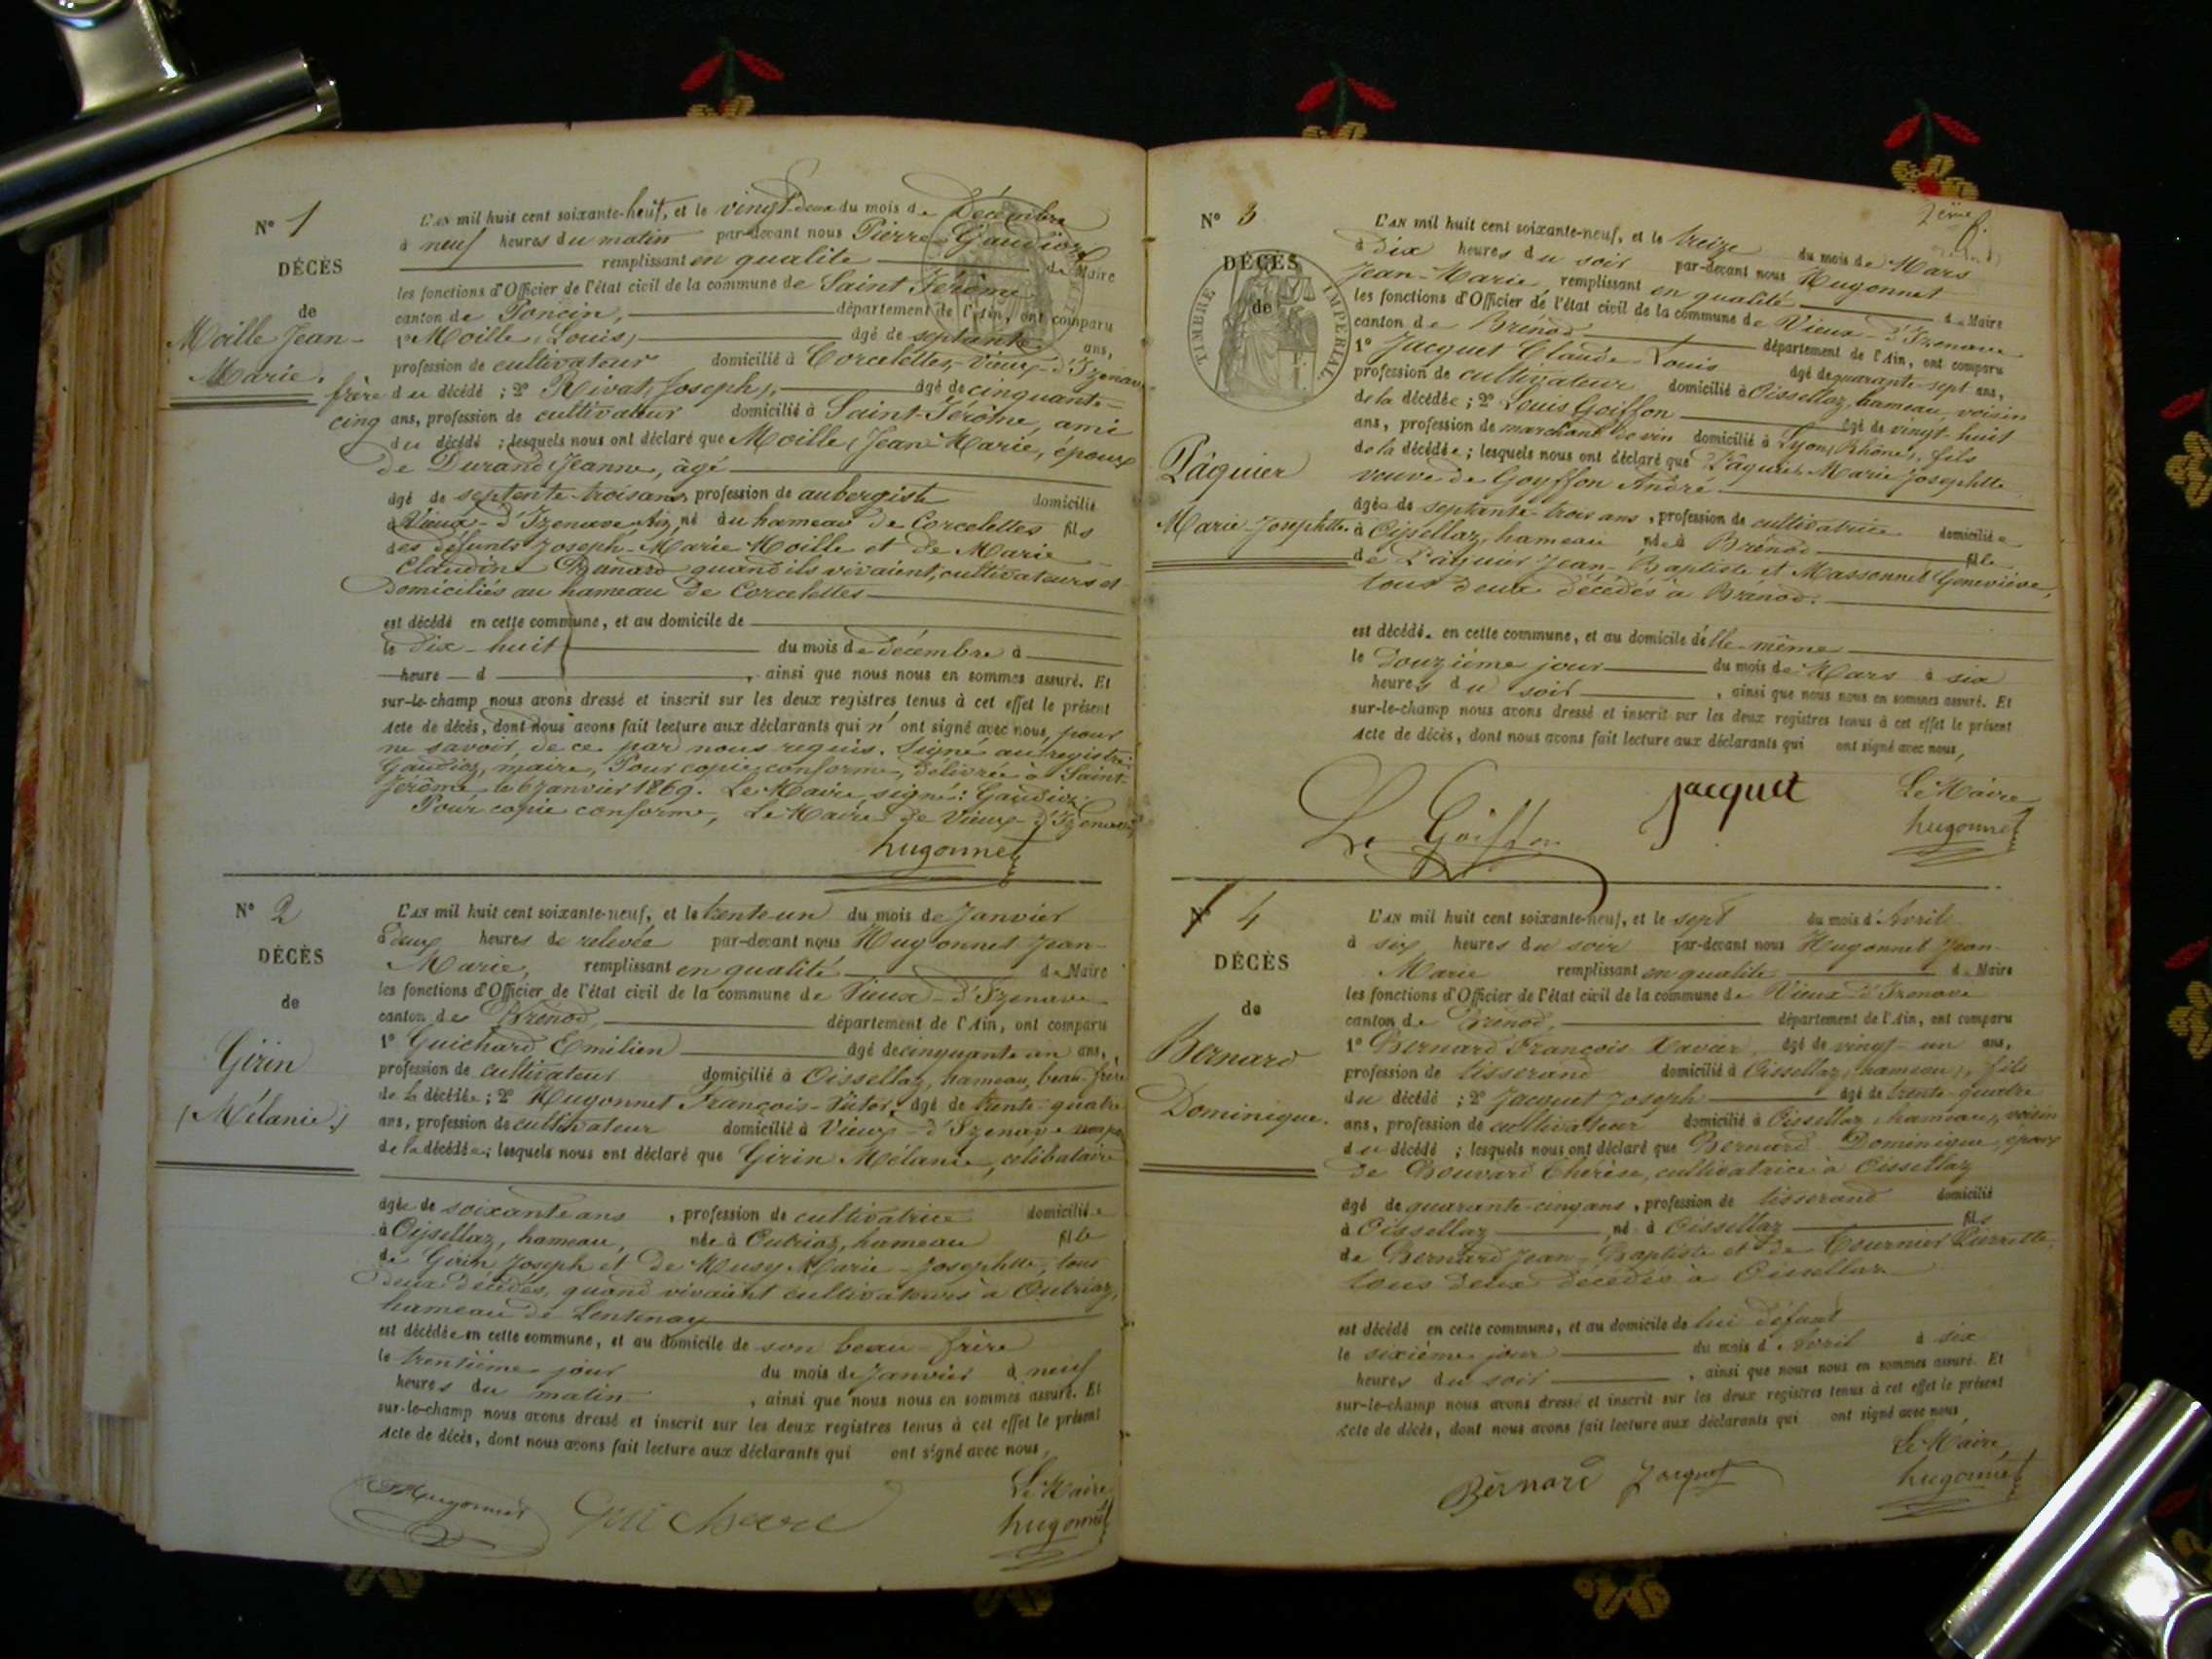 N° 1
DÉCÈS
de
Moille Jean-
Marie.
L'AN mil huit cent soixante-huit, et le vingt-deux du mois de Décembre
à neuf heures du matin par-devant nous Pierre Gaudioz
remplissant en qualité de Maire
les fonctions d'Officier de l'état civil de la commune de Saint Jérôme
canton de Poncin, département de l'Ain, ont comparu
1° Moille, Louis, âgé de septante ans,
profession de cultivateur domicilié à Corcelettes, Vieux-d'Izenave
frère du décédé ; 2° Rivat, Joseph, âgé de cinquante-
cinq ans, profession de cultivateur domicilié à Saint-Jérôme, ami
du décédé ; lesquels nous ont déclaré que Moille (Jean Marie, époux
de Durand Jeanne, âgé
âgé de septente-trois ans, profession de aubergiste domicilié
à Vieux-d'Izenave né au hameau de Corcelettes fils
des défunts Joseph-Marie Moille et de Marie
Claudine quand ils vivaient, cultivateurs et
Domiciliés au hameau de Corcelettes
est décédé en cette commune, et au domicile de
le dix-huit du mois de décembre à
heure d , ainsi que nous nous en sommes assuré. Et
sur-le-champ nous avons dressé et inscrit sur les deux registres tenus à cet effet le présent
Acte de décès, dont nous avons fait lecture aux déclarants qui n' ont signé avec nous, pour
ne savoir, de ce part nous requis. Signé au registre:
Gaudioz, maire, Pour copie conforme, délivrée à Saint-
Jérôme, le 6 janvier 1869. Le Maire, signé: Gaudioz.
Pour copie conforme, Le Maire de Vieux-d'Izenave,
hugonnet
N° 2
DÉCÈS
de
Girin
(Mélanie)
L'AN mil huit cent soixante-neuf, et le trente un du mois de Janvier
à deux heures de relevée par-devant nous Hugonnet Jean-
Marie, remplissant en qualité de Maire
les fonctions d'Officier de l'état civil de la commune de Vieux-d'Izenave
canton de Brénod, département de l'Ain, ont comparu
1° Guichard Emilien âgé de cinquante un ans,
profession de cultivateur domicilié à Oissellaz, hameau, beau-frère
de la décédée ; 2° Hugonnet François-Victor, âgé de trente-quatre
ans, profession de cultivateur domicilié à Vieux-d'Izenave
de la décédée ; lesquels nous ont déclaré que Girin Mélanie, célibataire
âgée de soixante ans , profession de cultivatrice domiciliée
à Oissellaz, hameau, née à Outriaz, hameau fille
de Girin Joseph et de Musy Marie-Josephtte, tous
deux décédés, quand vivaient cultivateurs à Outriaz,
hameau de Lentenay
est décédée en cette commune, et au domicile de son beau-frère
le trentième jour du mois de Janvier à neuf
heures du matin , ainsi que nous nous en sommes assuré. Et
sur-le-champ nous avons dressé et inscrit sur les deux registres tenus à cet effet le présent
Acte de décès, dont nous avons fait lecture aux déclarants qui ont signé avec nous,
Hugonnet Guichard Le Maire
hugonnet
2ème f.
N° 3
DÉCÈS
de
TIMBRE IMPÉRIAL
Pâquier
Marie-Josephtte.
L'AN mil huit cent soixante-neuf, et le treize du mois de Mars
à dix heures du soir par-devant nous Hugonnet
Jean-Marie, remplissant en qualité de Maire
les fonctions d'Officier de l'état civil de la commune de Vieux-d'Izenave
canton de Brénod département de l'Ain, ont comparu
1° Jacquet Claude-Louis âgé de quarante-sept ans,
profession de cultivateur domicilié à Oissellaz, hameau, voisin
de la décédée ; 2° Louis Goiffon âgé de vingt-huit
ans, profession de marchand de vin domicilié à Lyon, Rhône, fils
de la décédée ; lesquels nous ont déclaré que Pâquier Marie Josephtte,
veuve de Goyffon André
âgée de septante-trois ans, profession de cultivatrice domiciliée
à Oissellaz, hameau née à Brénod fille
de Pâquier Jean-Baptiste et Massonnet Geneviève,
tout deux décédés à Brénod.
est décédé. en cette commune, et au domicile d'elle-même
le Douzième jour du mois de Mars à six
heures du soir , ainsi que nous nous en sommes assuré. Et
sur-le-champ nous avons dressé et inscrit sur les deux registres tenus à cet effet le présent
Acte de décès, dont nous avons fait lecture aux déclarants qui ont signé avec nous,
Ls Goiffon jacquet Le Maire
hugonnet
N° 4
DÉCÈS
de
Bernard
Dominique.
L'AN mil huit cent soixante-neuf, et le sept du mois d'Avril
à six heures du soir par-devant nous Hugonnet Jean-
Marie remplissant en qualité de Maire
les fonctions d'Officier de l'état civil de la commune de Vieux-d'Izenave
canton de Brénod, département de l'Ain, ont comparu
1° Bernard François-Xavier âgé de vingt-un ans,
profession de tisserand domicilié à Oissellaz, hameau, fils
du décédé ; 2° Jacquet Joseph âgé de trente-quatre
ans, profession de cultivateur domicilié à Oissellaz, hameau, voisin
du décédé ; lesquels nous ont déclaré que Bernard Dominique, époux
de Bouvard Thérèse, cultivatrice à Oissellaz
âgé de quarante-cinq ans, profession de tisserand domicilié
à Oissellaz, né à Oissellaz fils
de Bernard Jean-Baptiste et de Tournier Pierrette,
tous deux décédés à Oissellaz
est décédé en cette commune, et au domicile de lui défunt
le sixième jour du mois d'Avril à six
heures du soir , ainsi que nous nous en sommes assuré. Et
sur-le-champ nous avons dressé et inscrit sur les deux registres tenus à cet effet le présent
Acte de décès, dont nous avons fait lecture aux déclarants qui ont signé avec nous
Bernard Jacquet Le Maire,
hugonnet